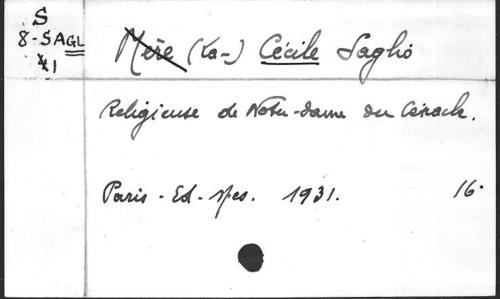 S
8-SAGL
1
Mère (La-) Cécile Saglio
Religieuse de Notre-Dame du Cénacle.
Paris - Ed. Spes. 1931. 16°